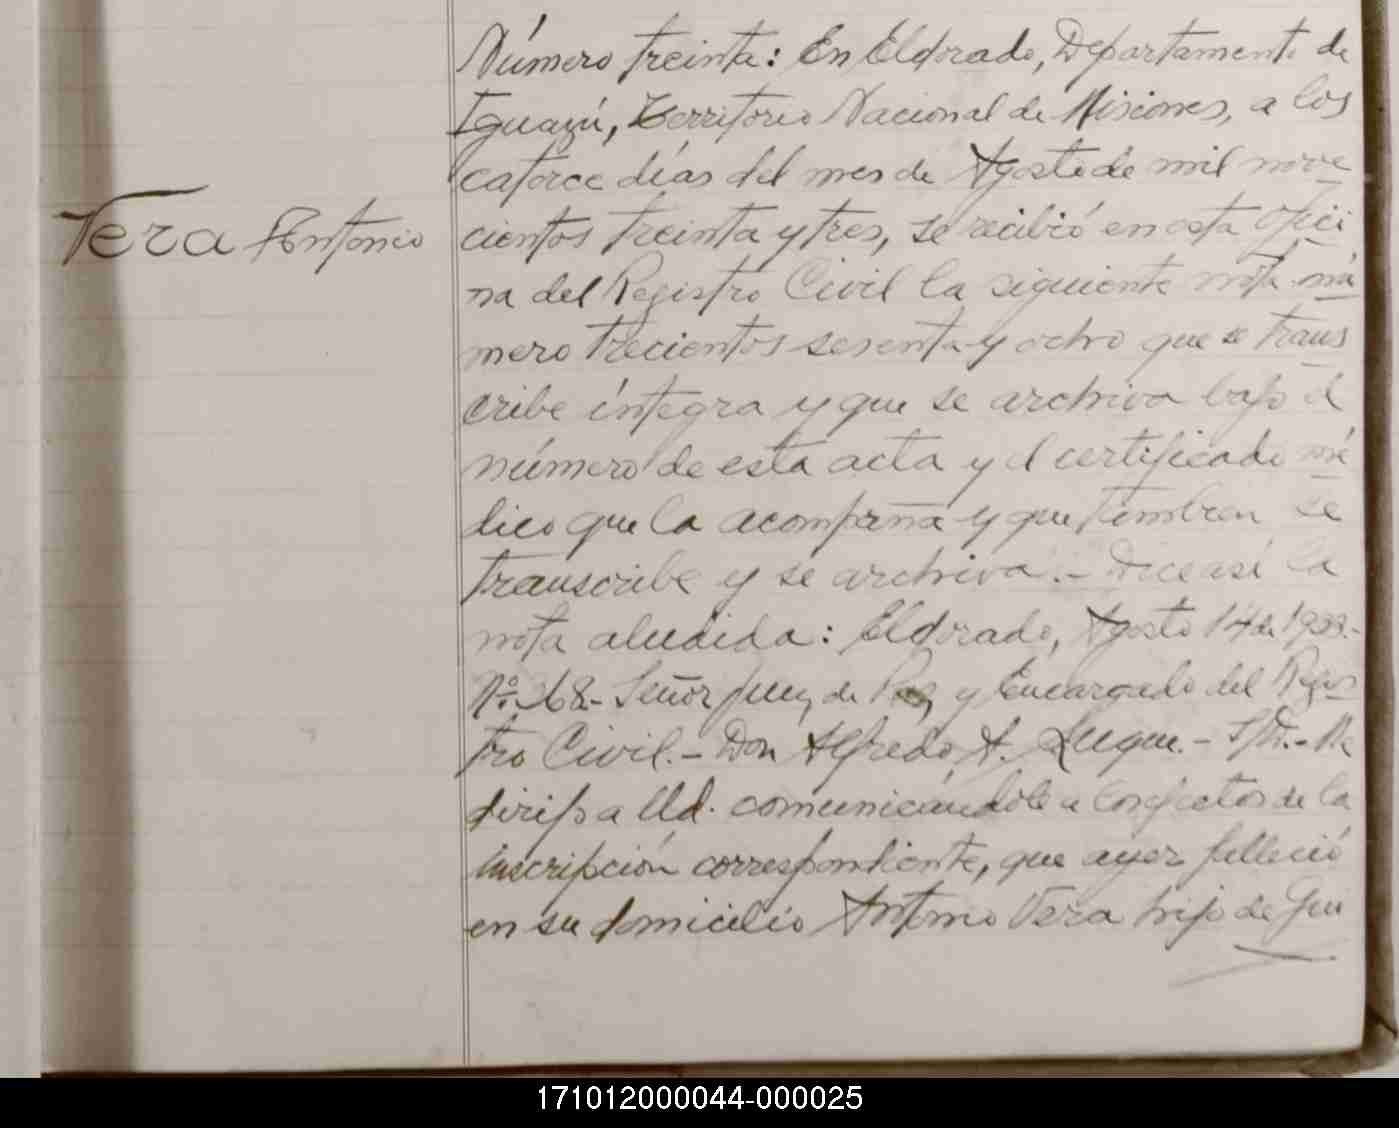 Número treinta: En Eldorado, Departamento de
Iguazú, Territorio Nacional de Misiones, a los
catorce días del mes de Agosto de mil nove
Vera Antonio
cientos treinta y tres, se recibió en esta ofici
na del Registro Civil la siguiente nota nú
mero trecientos sesenta y ocho que se trans
cribe íntegra y que se archiva bajo el
número de esta acta y el certificado mé
dico que la acompaña y que tambien se
transcribe y se archiva.- Dice así la
nota aludida: Eldorado, Agosto 14 de 1933.-
Señor Juez de Paz y Encargado del Regis
tro Civil.- Don Alfredo A. Luque.- S/D.- Me
dirijo a Ud. comunicándole a los efectos de la
inscripción correspondiente, que ayer falleció
en su domicilio Antonio Vera hijo de Gui
171012000044-000025